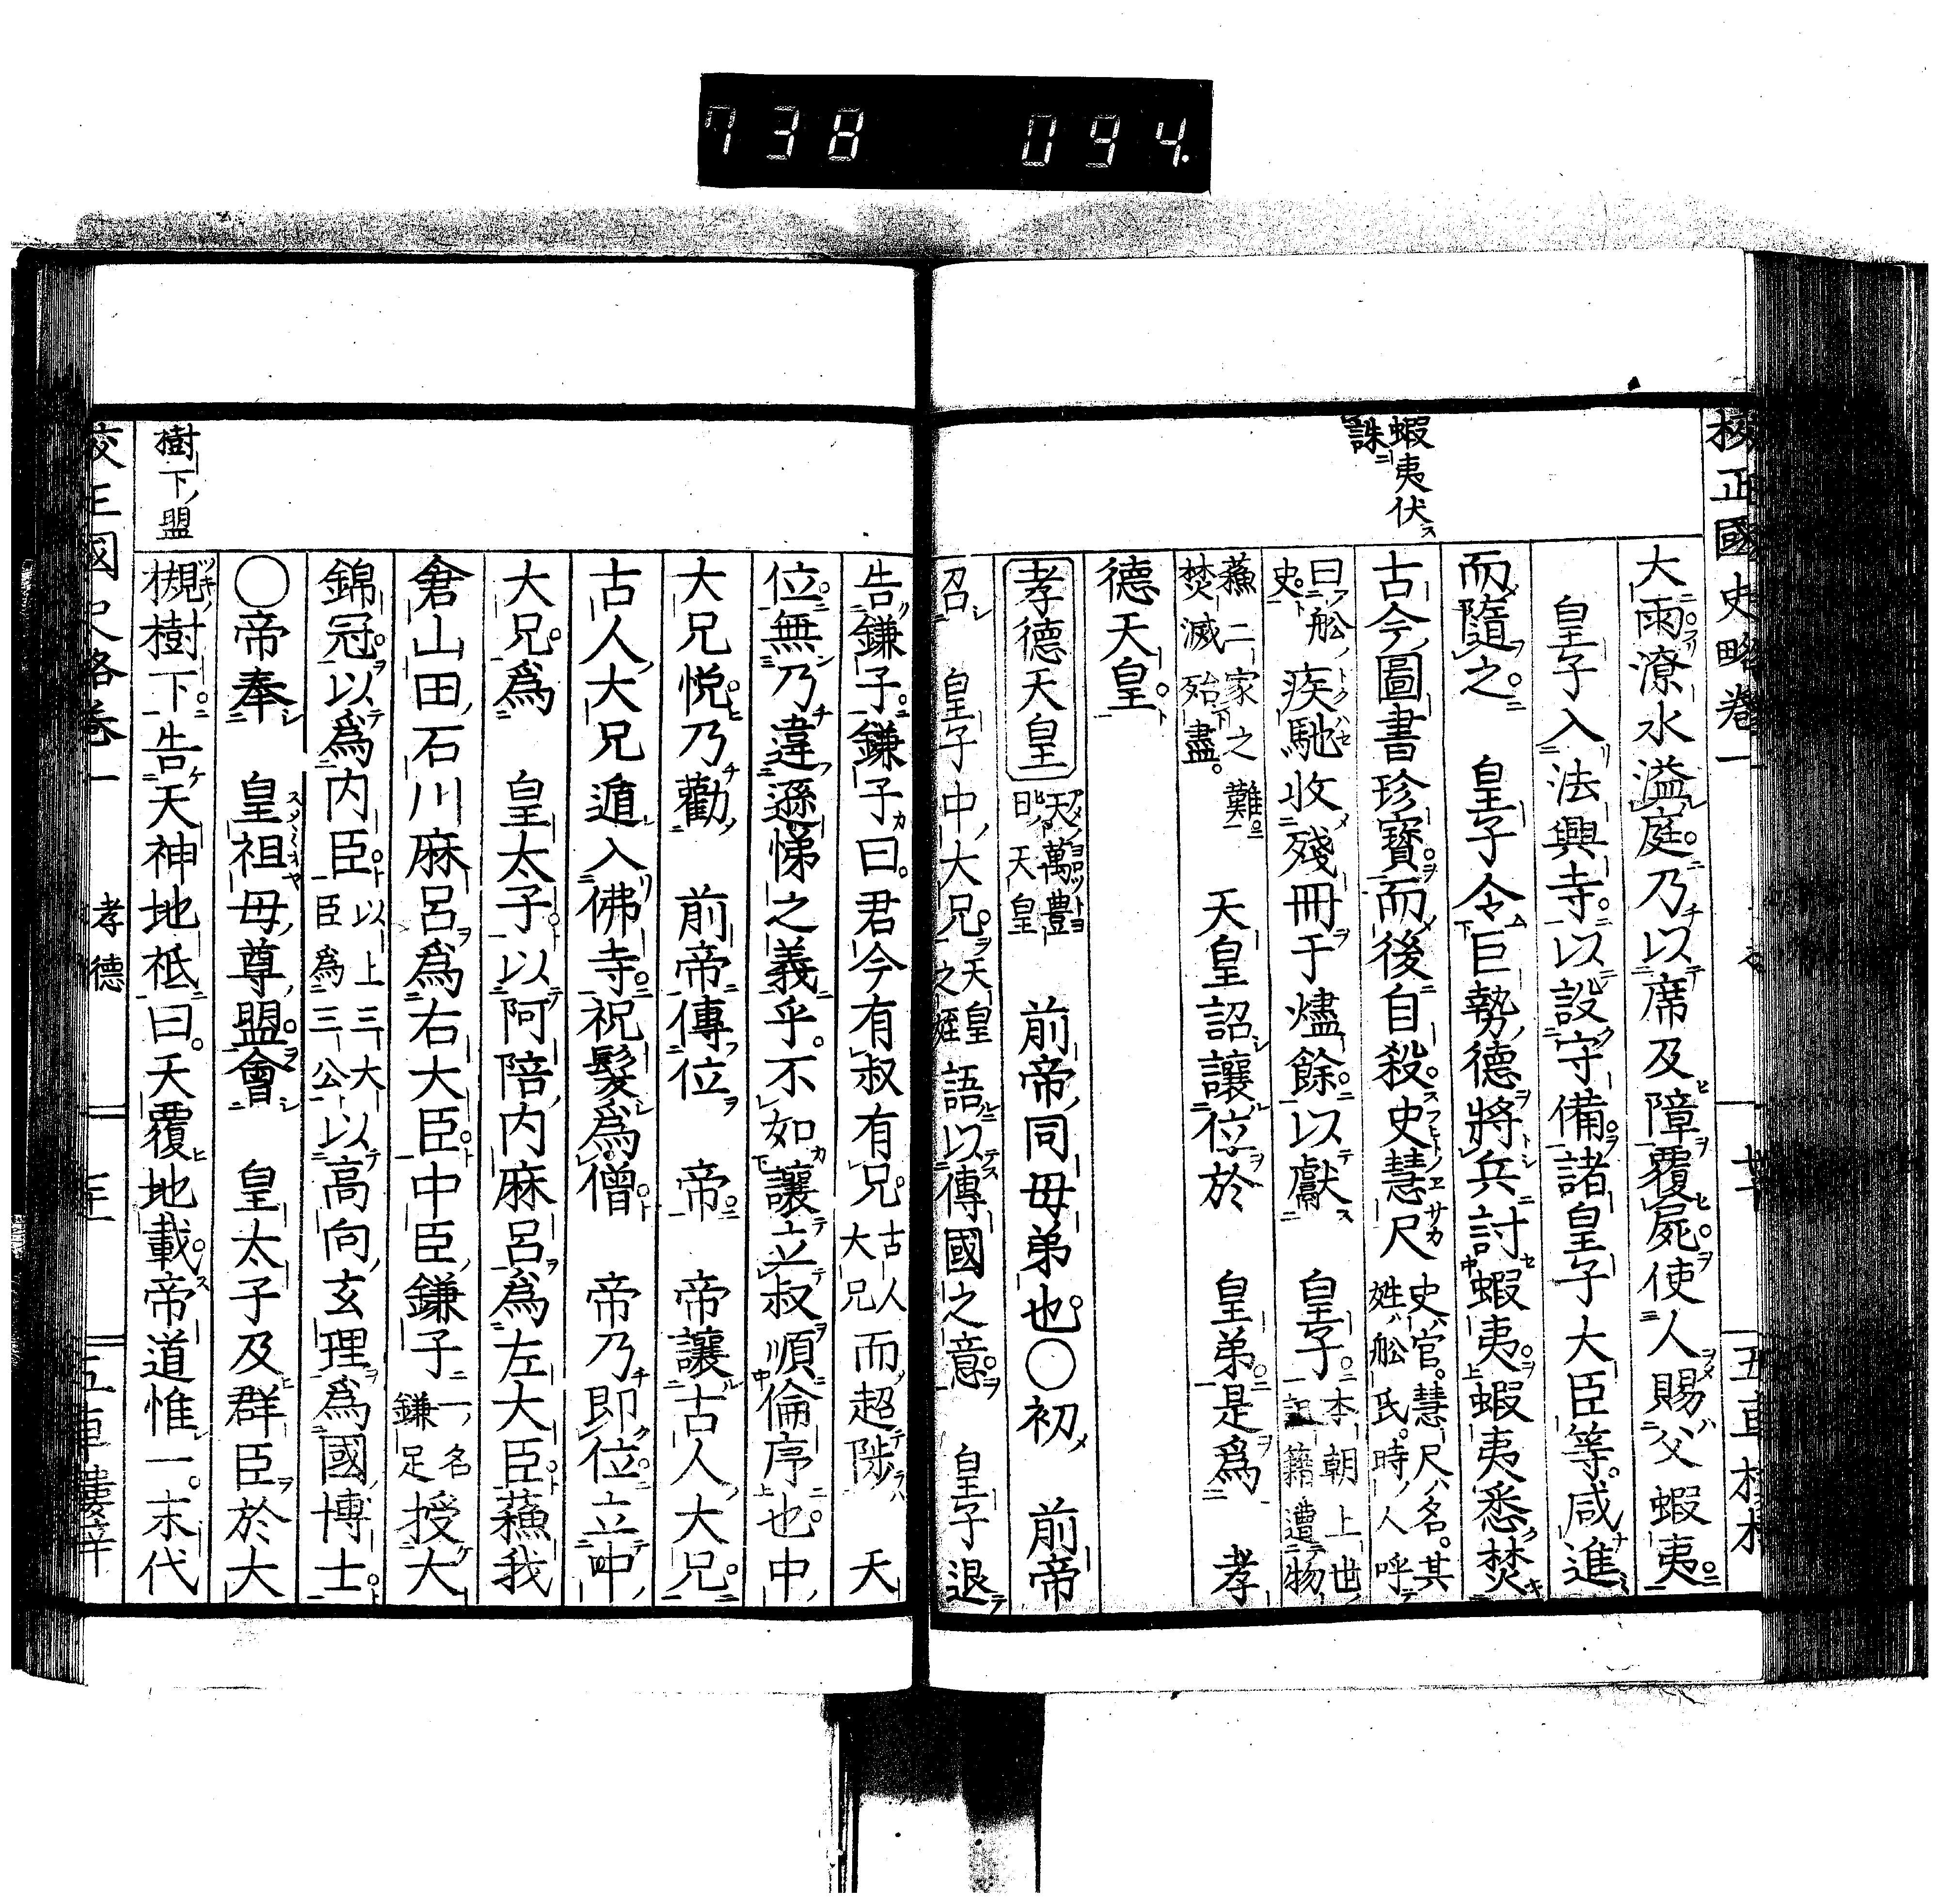 738 094.
校正國史略卷一
五車楼
蝦夷伏
誅
大雨潦水溢庭乃以席及障覆屍使人賜父蝦夷
皇子入法興寺以設守備諸皇子大臣等咸進
而隨之 皇子令巨勢德將兵討蝦夷蝦夷悉焚
古今圖書珍寶而後自殺史慧尺史官慧尺名其姓舩氏時人呼
曰舩史疾馳收殘冊于燼餘以獻 皇子本朝上世記籍遭物
蘓二家之難焚滅殆盡 天皇詔讓位於 皇弟是爲 孝
德天皇
孝德天皇 天萬豊日天皇 前帝同母弟也○初 前帝
召 皇子中大兄天皇之姪語以傳國之意 皇子退
告鎌子鎌子曰君今有叔有兄古人大兄而超陟 天
位無乃違遜悌之義乎不如讓立叔順倫序也中
大兄悦乃勸 前帝傳位 帝 帝讓古人大兄
古人大兄遁入佛寺祝髮爲僧 帝乃即位立中
大兄爲 皇太子以阿陪内麻呂爲左大臣蘓我
倉山田石川麻呂爲右大臣中臣鎌子一名鎌足授大
錦冠以爲内臣以上三大臣爲三公以高向玄理爲國博士
○帝奉 皇祖母尊盟會 皇太子及群臣於大
槻樹下告天神地祗曰天覆地載帝道惟一末代
樹下ノ盟
校正國史略卷一
孝德